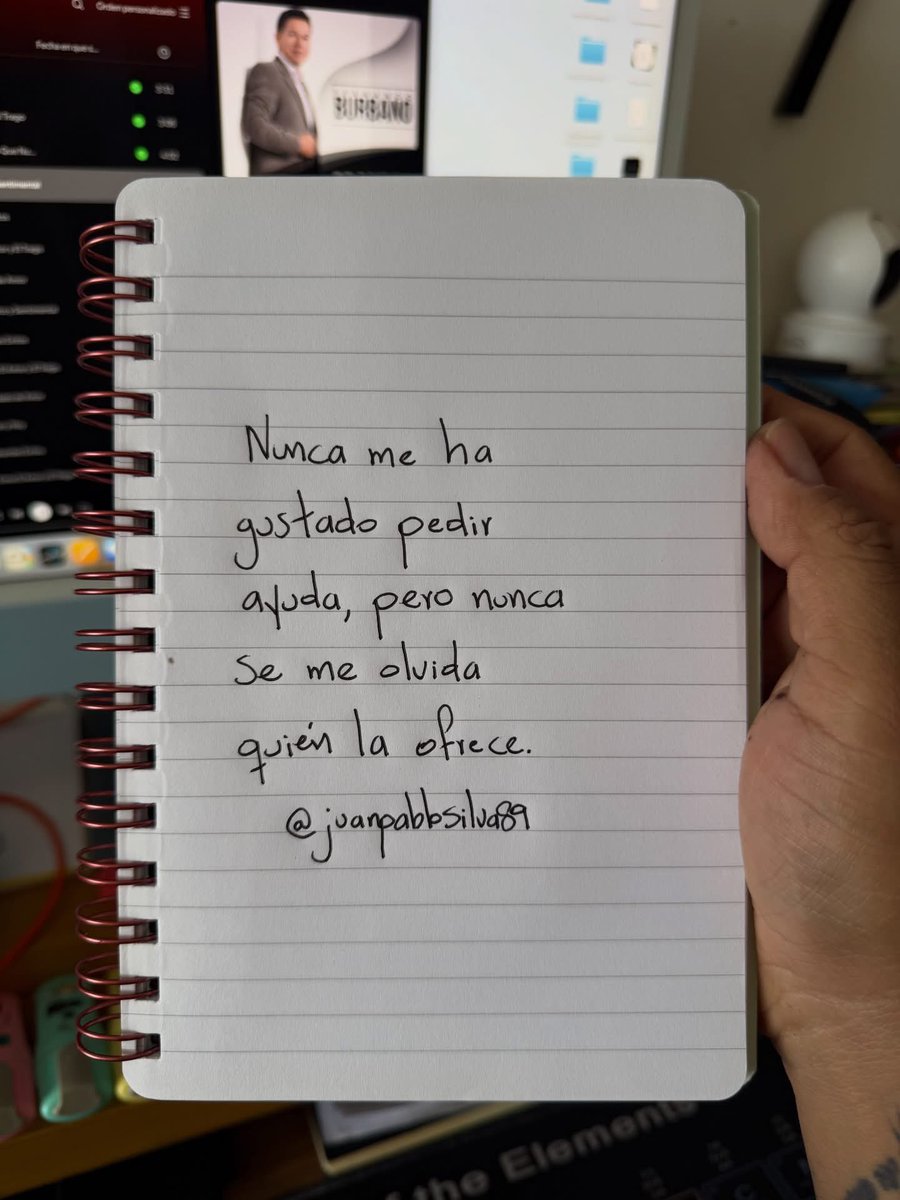 Orden personalizado
BURBANO
Nunca me ha
gustado pedir
ayuda, pero nunca
se me olvida
quién la ofrece.
@juanpabbsilva89
of the Elements